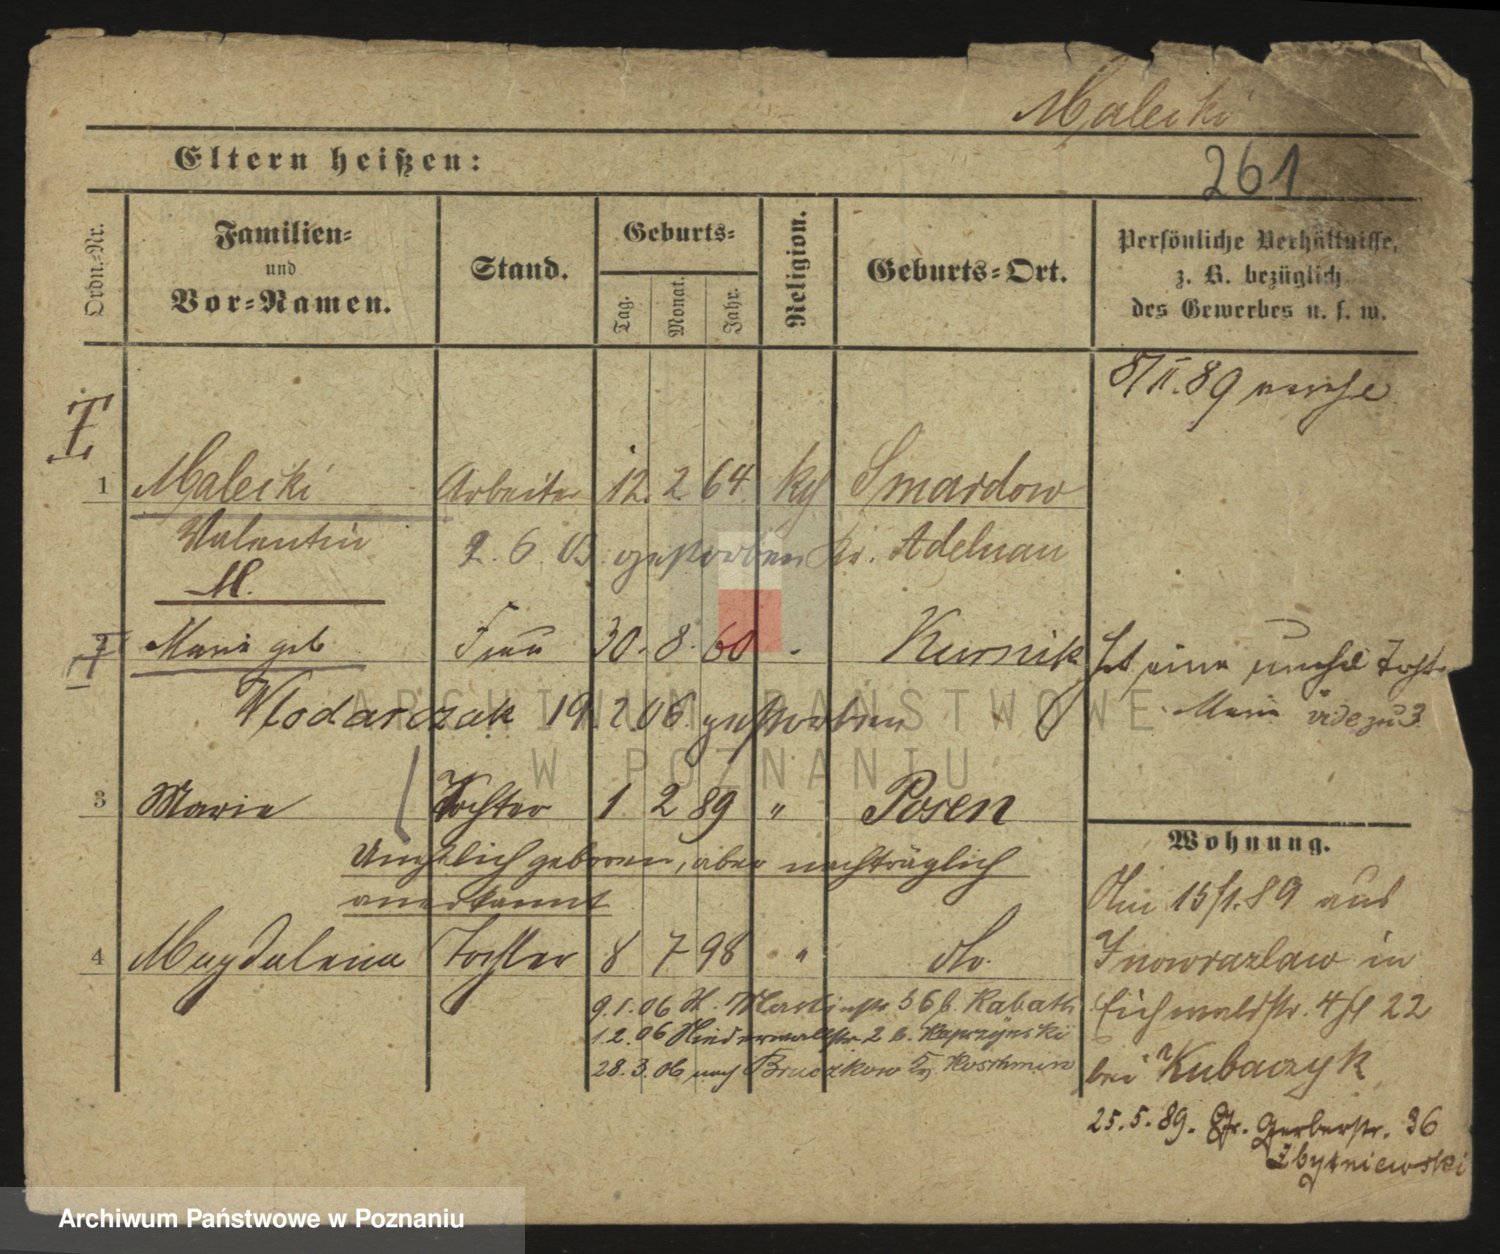 Malecki
Eltern heißen:
261
Ordn.-Nr.
Familien-
und
Vor-Namen.
Stand.
Geburts-
Tag.
Monat.
Jahr.
Religion.
Geburts-Ort.
Persönliche Verhältnisse,
z. B. bezüglich
des Gewerbes u. s. w.
8/II.89
1 Malecki Arbeiter 12. 2 64 kg Smardow
Valentin 2. 6. 03 gestorben Kr. Adelnau
M.
2 Marie geb Frau 30. 8. 60 Kurnik Hat eine unehel Tocht
Wlodarczak 19.2.06 gestorben Marie vide zu 3
3 Marie Tochter 1 2 89 " Posen
Unehelich geboren, aber nachträglich
anerkannt
4 Magdalena Tochter 8 7 98 " do.
9.1.06 H. Martinstr 56 b. Kabath
1.2.06 Niederwallstr 2 b.
28.3.06 nach Bruczkow Kr Koschmin
Wohnung.
Am 15/1.89 aus
Inowrazlaw in
Eichwaldstr. 4/H 22
bei Kubaczyk
25.5.89. Gr. Gerberstr. 36
Zbytniewski
ARCHIWUM PAŃSTWOWE
W POZNANIU
Archiwum Państwowe w Poznaniu